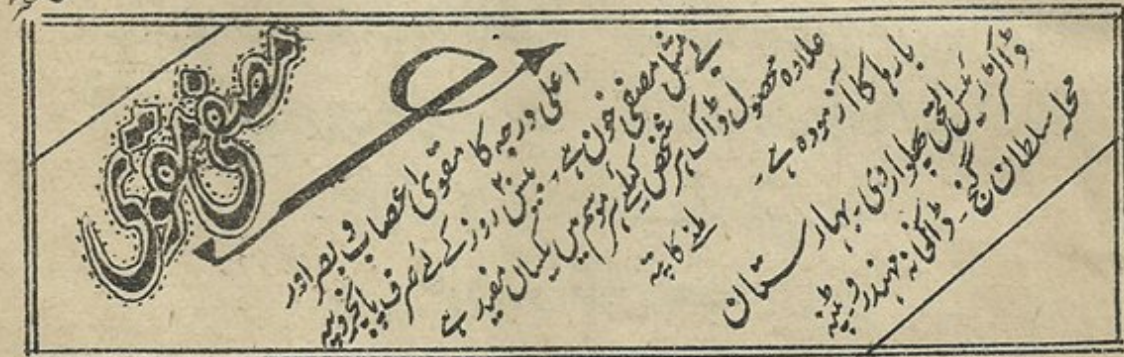 مصفی مقوی
اعلیٰ درجہ کا مقوی اعصاب و بصر اور
بے مثل مصفی خون ہے۔ بیس روز کے لئے صرف پانچروپیہ
علاوہ محصول ڈاک ہر شخص کیلئے ہر موسم میں یکساں مفید ہے
بارہا کا آزمودہ ہے۔
ملنے کا پتہ
ڈاکٹر الحق پھلواروی۔ بہارستان
محلہ سلطان گنج۔ ڈاکخانہ مہندرو۔ پٹنہ